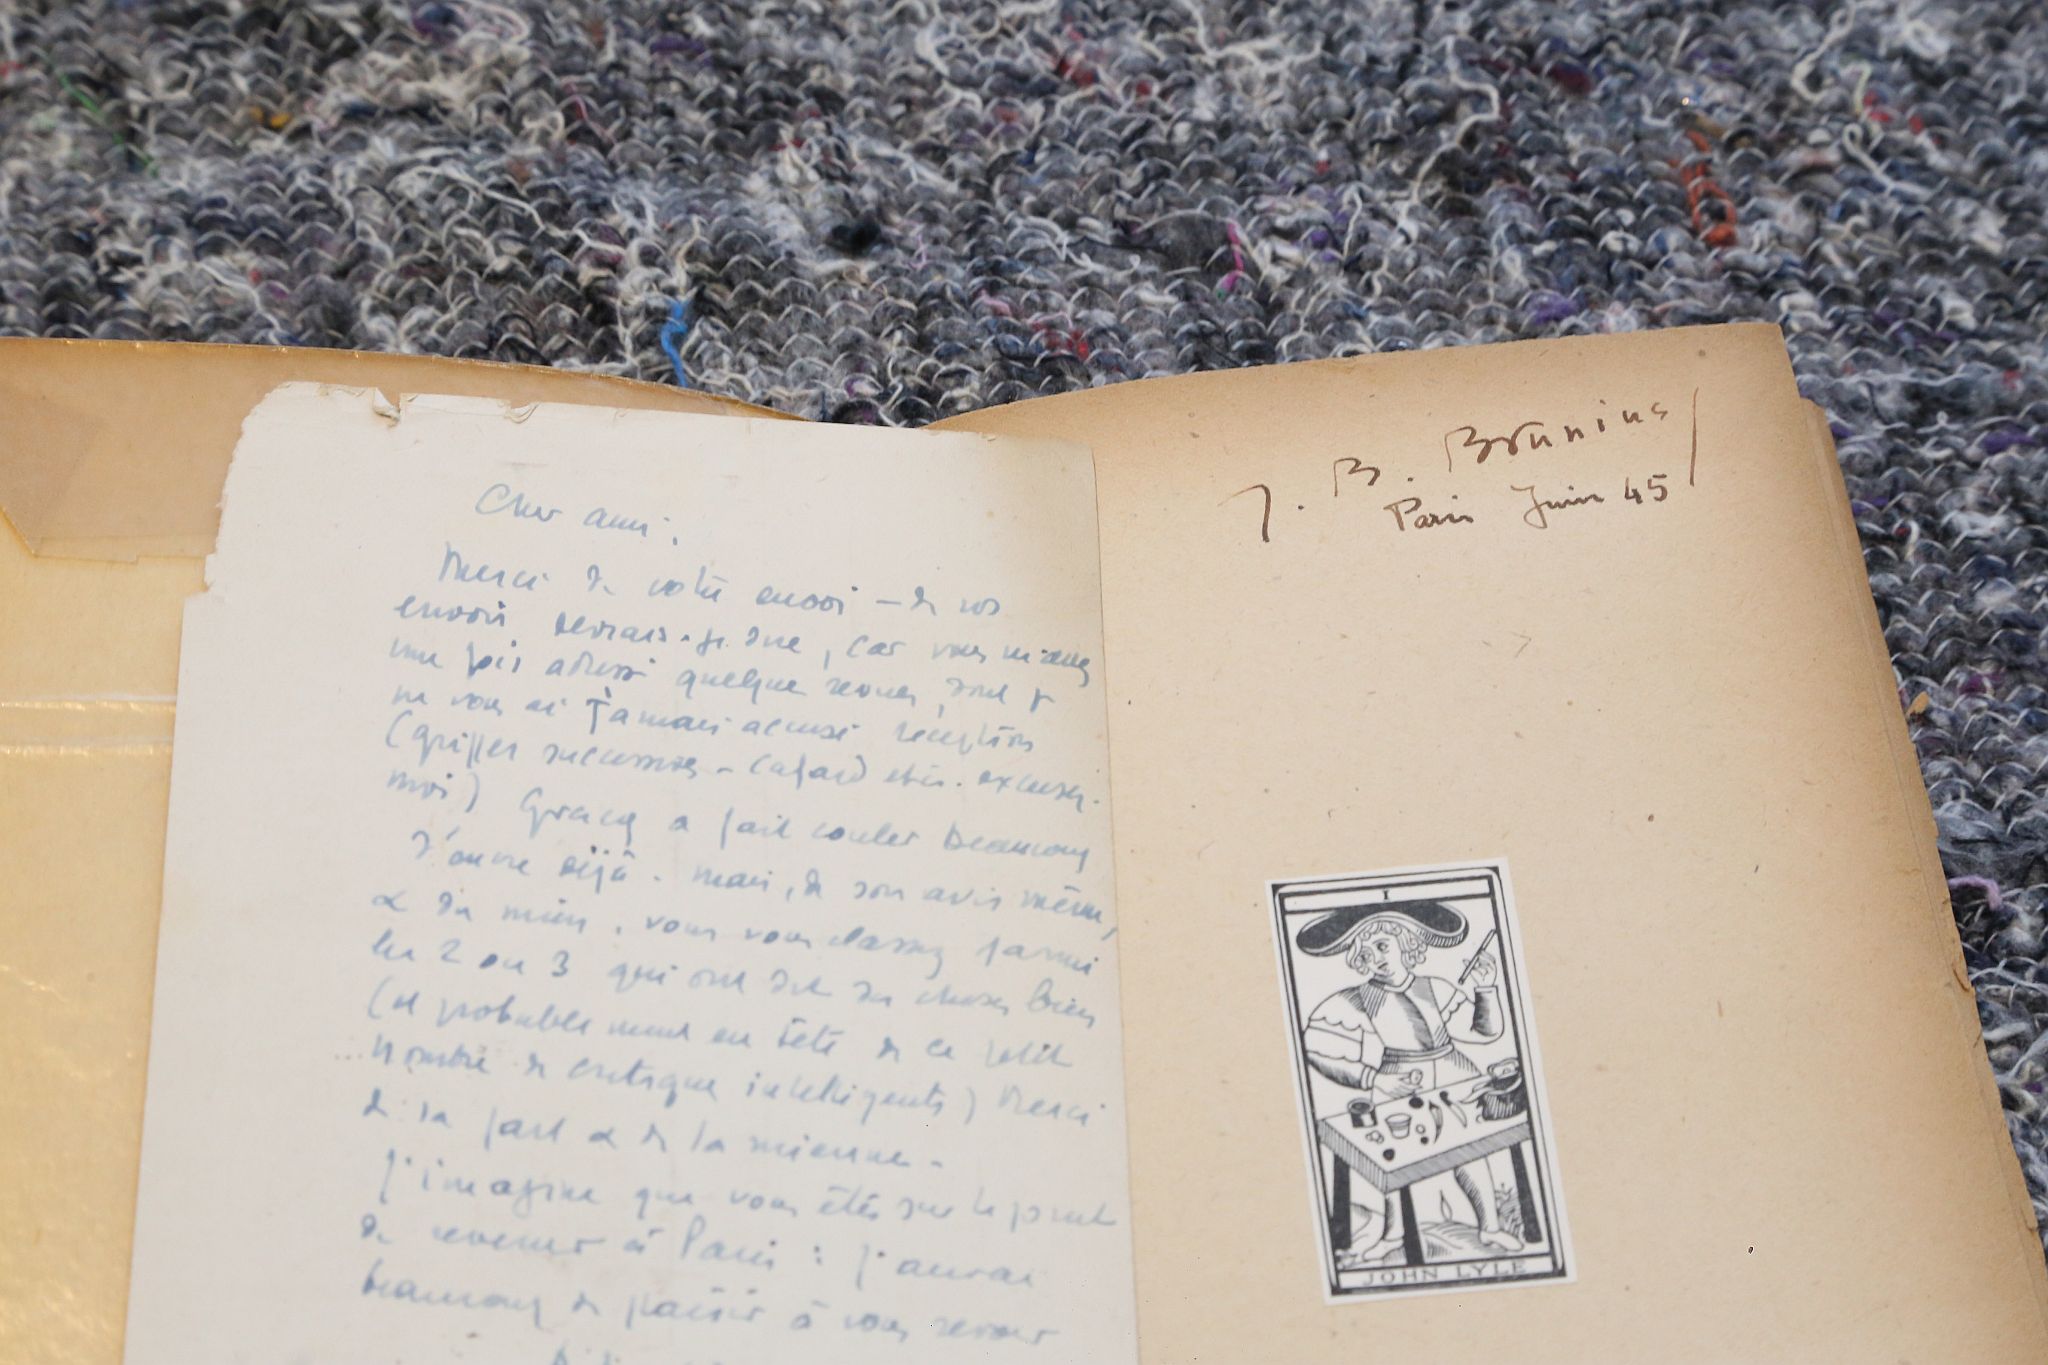 Cher ami.
Merci de votre envoi – de vos
envois devrais-je dire, car vous m'avez
une fois adressé quelque revues, dont je
ne vous ai jamais accusé réception
(grippes successives – cafard etc. excusez-
moi) Gracq a fait couler beaucoup
d'encre déjà. mais, de son avis même,
& du mien, vous vous classez parmi
les 2 ou 3 qui ont dit des choses bien
(et probablement en tête de ce petit
nombre de critique intelligents) Merci
de sa part & de la mienne –
J'imagine que vous êtes sur le point
de revenir à Paris : j'aurai
beaucoup de plaisir à vous revoir
J. B. Brunius
Paris Juin 45
I
JOHN LYLE